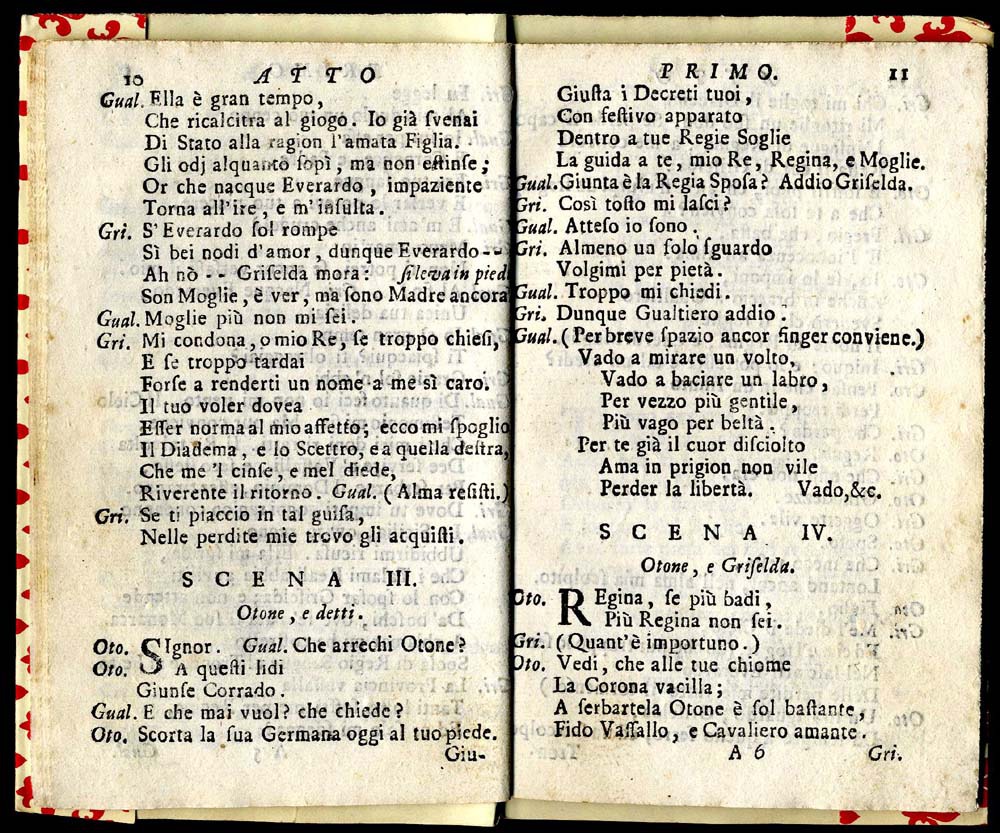 10 ATTO
Gual. Ella è gran tempo,
Che ricalcitra al giogo. Io già ſvenai
Di Stato alla ragion l'amata Figlia.
Gli odj alquanto ſopì, ma non eſtinſe;
Or che nacque Everardo, impaziente
Torna all'ire, e m'inſulta.
Gri. S'Everardo ſol rompe
Sì bei nodi d'amor, dunque Everardo --
Ah nò -- Griſelda mora: ſi leva in pied
Son Moglie, è ver, ma ſono Madre ancora
Gual. Moglie più non mi ſei.
Gri. Mi condona, o mio Re, ſe troppo chieſi,
E ſe troppo tardai
Forſe a renderti un nome a me sì caro.
Il tuo voler dovea
Eſſer norma al mio affetto; ecco mi ſpoglio
Il Diadema, e lo Scettro, e a quella deſtra,
Che me 'l cinſe, e mel diede,
Riverente il ritorno. Gual. (Alma reſiſti.)
Gri. Se ti piaccio in tal guiſa,
Nelle perdite mie trovo gli acquiſti.
SCENA III.
Otone, e detti.
Oto. SIgnor. Gual. Che arrechi Otone?
Oto. A queſti lidi
Giunſe Corrado.
Gual. E che mai vuol? che chiede?
Oto. Scorta la ſua Germana oggi al tuo piede.
Giu-
PRIMO. 11
Giuſta i Decreti tuoi,
Con feſtivo apparato
Dentro a tue Regie Soglie
La guida a te, mio Re, Regina, e Moglie.
Gual. Giunta è la Regia Spoſa? Addio Griſelda.
Gri. Così toſto mi laſci?
Gual. Atteſo io ſono.
Gri. Almeno un ſolo ſguardo
Volgimi per pietà.
Gual. Troppo mi chiedi.
Gri. Dunque Gualtiero addio.
Gual. (Per breve ſpazio ancor finger conviene.)
Vado a mirare un volto,
Vado a baciare un labro,
Per vezzo più gentile,
Più vago per beltà.
Per te già il cuor diſciolto
Ama in prigion non vile
Perder la libertà. Vado,&c.
SCENA IV.
Otone, e Griſelda.
Oto. REgina, ſe più badi,
Più Regina non ſei.
Gri. (Quant'è importuno.)
Oto. Vedi, che alle tue chiome
La Corona vacilla;
A ſerbartela Otone è ſol baſtante,
Fido Vaſſallo, e Cavaliero amante.
A 6 Gri.